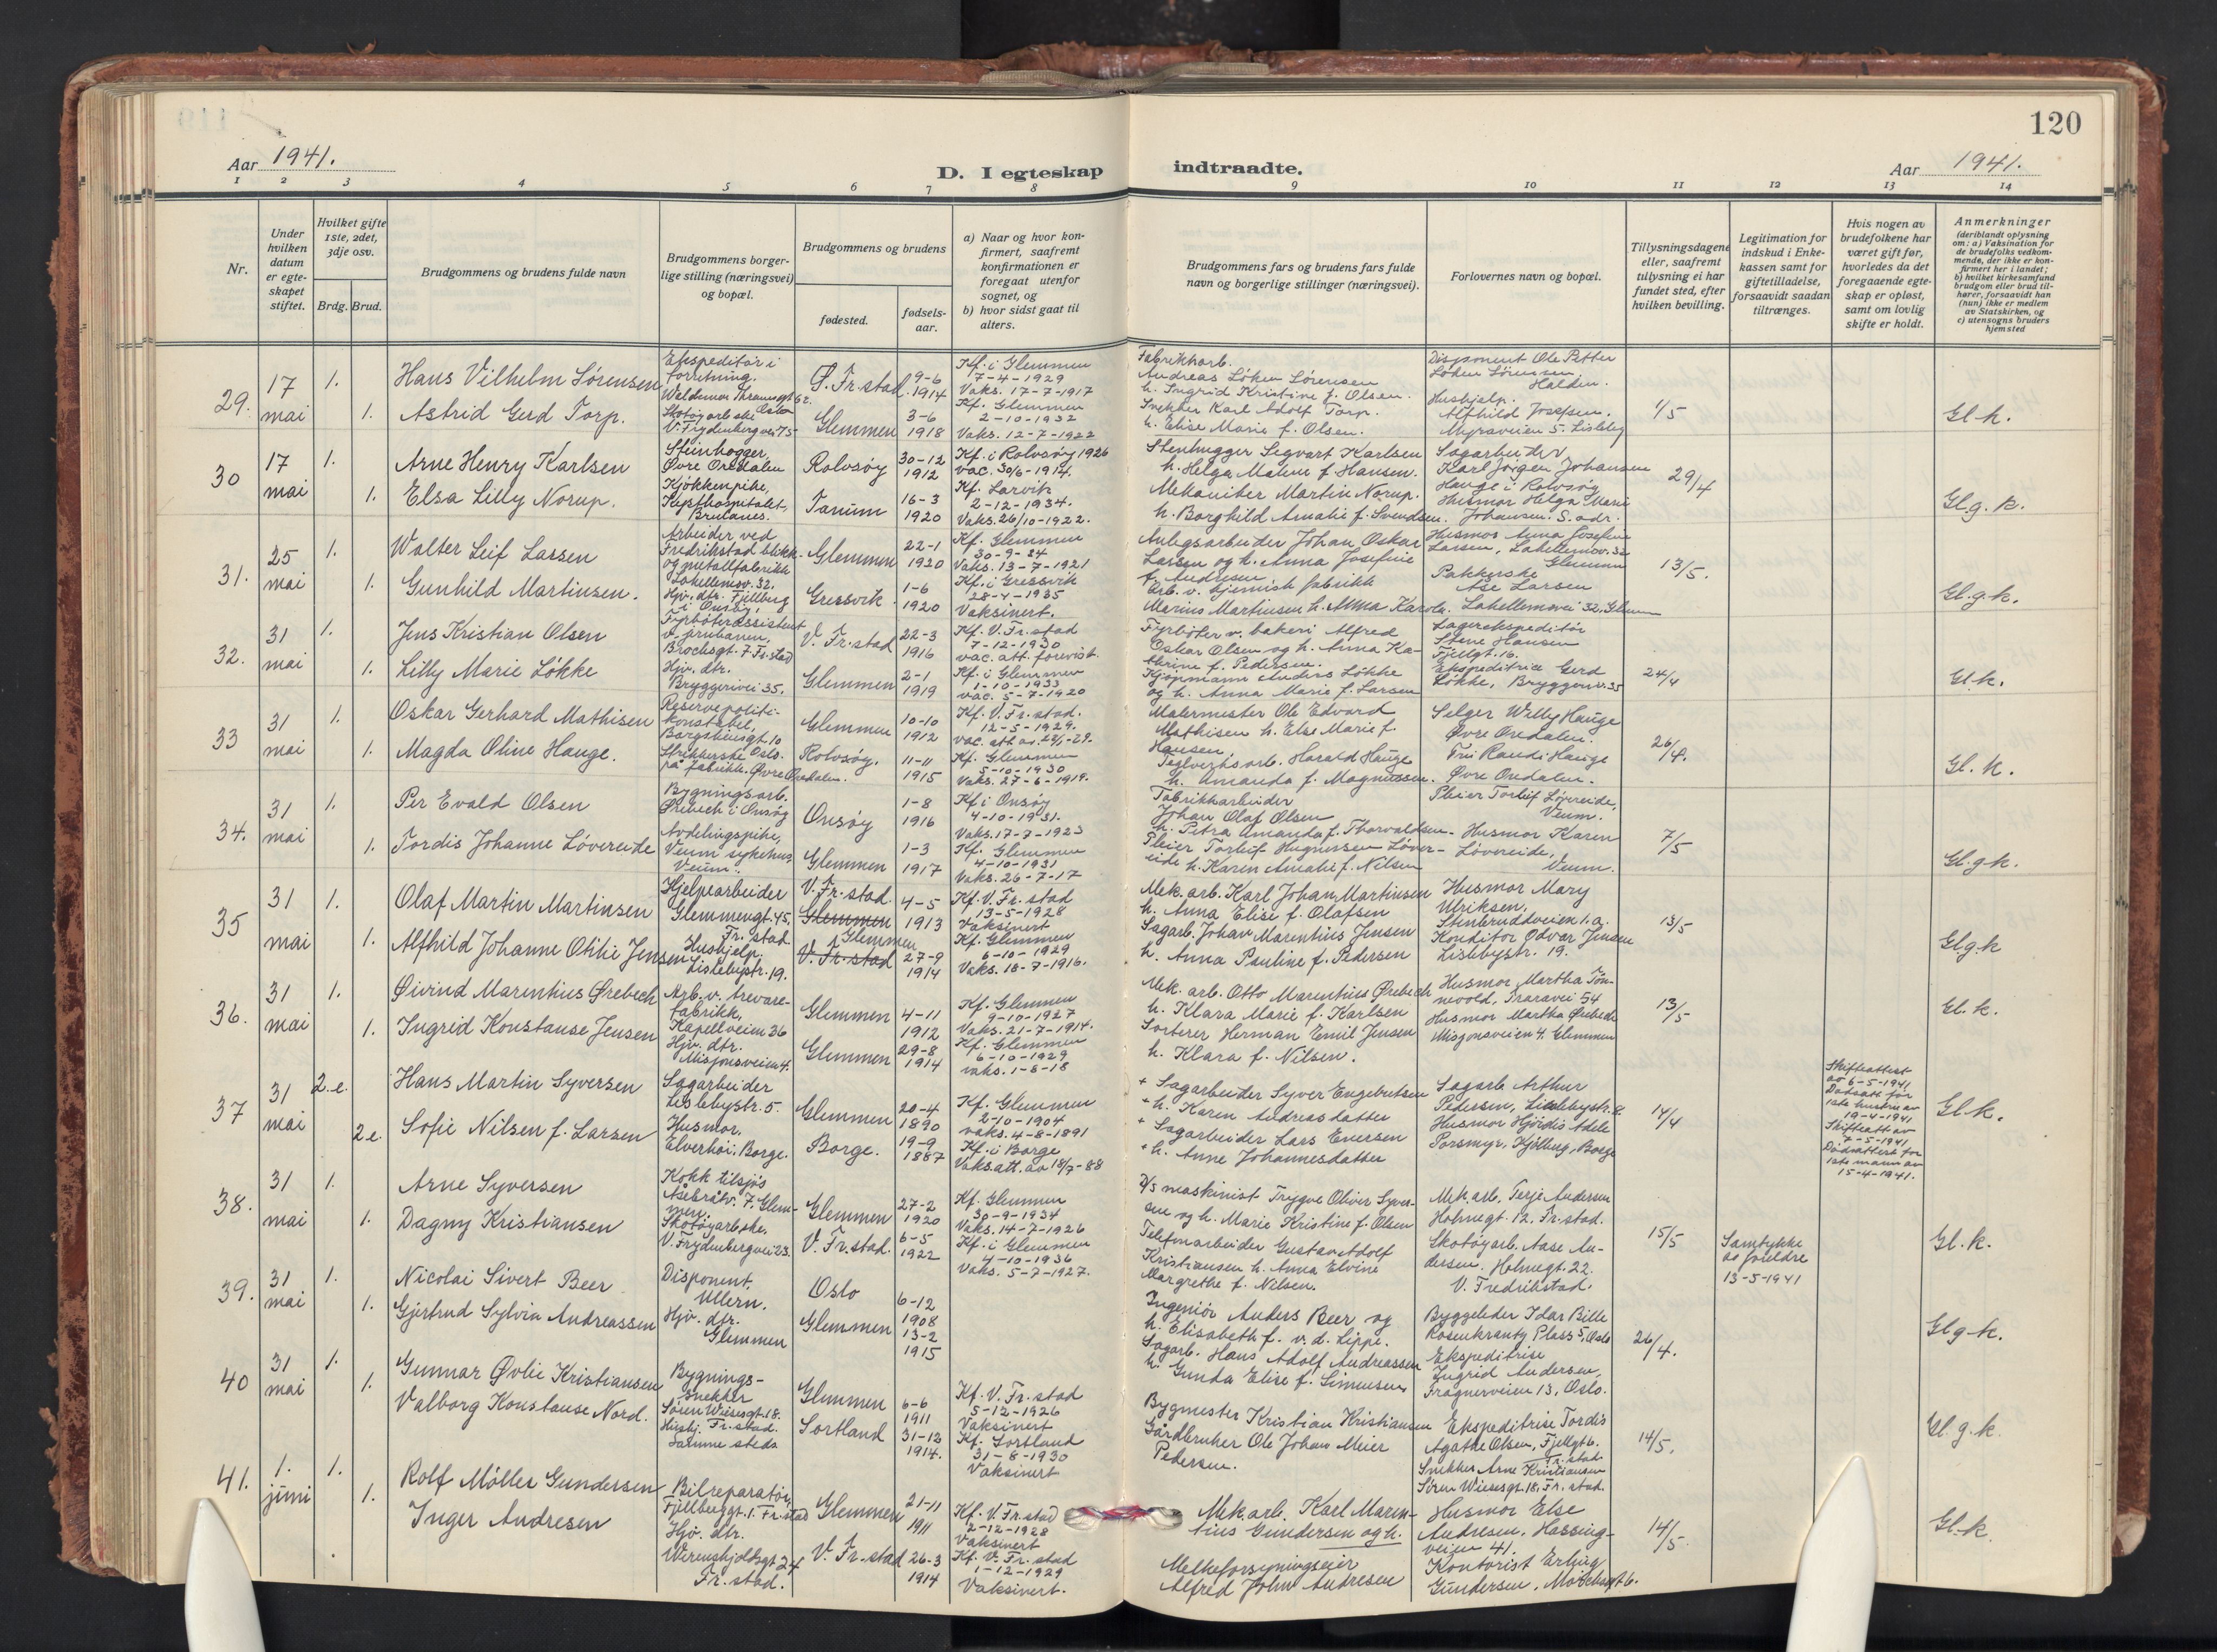 120
Aar 1941.
D. I egteskap indtraadte.
Aar 1941.
1 2 3 4 5 6 7 8 9 10 11 12 13 14
Nr.
Under hvilken datum er egte-skapet stiftet.
Hvilket gifte 1ste, 2det, 3dje osv.
Brdg. Brud.
Brudgommens og brudens fulde navn
Brudgommens borger-lige stilling (næringsvei) og bopæl.
Brudgommens og brudens
fødested.
fødsels-aar.
a) Naar og hvor kon-firmert, saafremt konfirmationen er foregaat utenfor sognet, og
b) hvor sidst gaat til alters.
Brudgommens fars og brudens fars fulde navn og borgerlige stillinger (næringsvei).
Forlovernes navn og bopæl.
Tillysningsdagene eller, saafremt tillysning ei har fundet sted, efter hvilken bevilling.
Legitimation for indskud i Enke-kassen samt for giftetilladelse, forsaavidt saadan tiltrænges.
Hvis nogen av brudefolkene har været gift før, hvorledes da det foregaaende egte-skap er opløst, samt om lovlig skifte er holdt.
Anmerkninger
(deriblandt oplysning om: a) Vaksination for de brudefolks vedkom-mende, der ikke er kon-firmert her i landet;
b) hvilket kirkesamfund brudgom eller brud til-hører, forsaavidt han (hun) ikke er medlem av Statskirken, og
c) utensogns bruders hjemsted
29. 17 mai 1. Hans Vilhelm Sörensen
Ekspeditør i forretning.
Ø. Fr.stad. 9-6 1914
Kf. i Glemmen 7-4-1929 Vaks. 17-7-1917
Fabrikkarb. Andreas Löken Sörensen h. Ingrid Kristine f. Olsen.
Disponent Ole Petter Löken Sörensen. Halden.
1. Astrid Gerd Torp.
V. Frydenbergvei 75
Glemmen 3-6 1918
Kf. Glemmen 2-10-1932 Vaks. 12-7-1922
Snekker Karl Adolf Torp. h. Elise Marie f. Olsen.
Hushjelp. Alfhild Josefsen. Myraveien 5. Lisleby
1/5
Gl.k.
30 17 mai 1. Arne Henry Karlsen
Steinhogger, Øvre Oredalen
Rolvsöy 30-12 1912
Kf. i Rolvsöy 1926 vac. 30/6-1914.
Stenhugger Segvart Karlsen h. Helga Malene f. Hansen.
Sagarbeider Karl Jörgen Johansen Hauge i Rolvsöy
1. Elsa Lilly Norup.
Kjökkenpike,
Tanum 16-3 1920
Kf. Larvik 2-12-1934. Vaks. 26/10-1922.
Mekaniker Martin Norup. h. Borghild Amalie f. Svendsen.
Husmor Helga Marie Johansen. S. adr.
29/4
Gl.g.k.
31. 25 mai 1. Walter Leif Larsen
Arbeider ved Fredrikstad blikk- og metallfabrikk Lahellemsv. 32.
Glemmen 22-1 1920
Kf. Glemmen 30-9-34 Vaks. 13-7-1921
Anlegsarbeider Johan Oskar Larsen og h. Anna Josefine f. Andresen
Husmor Anna Josefine Larsen, Lahellemsv. 32 Glemmen
1. Gunhild Martinsen.
Hjv. dtr. Fjellberg i Onsöy.
Gressvik 1-6 1920
Kf. i Gressvik 28-4-1935 Vaksinert.
Arb. v. kjemisk fabrikk Marius Martinsen h. Anna Karola.
Pakkerske Åse Larsen Lahellemsvei 32, Glemmen
13/5.
Gl.g.k.
32. 31 mai 1. Jens Kristian Olsen
Fyrböterassistent Brochsgt. 7 Fr.stad
V. Fr.stad 22-3 1916
Kf. V. Fr.stad 7-12-1930 vac. att. forevist.
Fyrböter v. bakeri Alfred Oskar Olsen og h. Anna Ka-thrine f. Pedersen.
Lagerekspeditör Stene Hansen Fjellgt. 16.
1. Lilly Marie Lökke
Hjv. dtr. Bryggerivei 35.
Glemmen 2-1 1919
Kf. i Glemmen 1-10-1933 vac. 5-7-1920
Kjöpmann Anders Lökke og h. Anna Marie f. Larsen
Ekspeditrice Gerd Lökke, Bryggeriv. 35
24/4
Gl.k.
33 31 mai 1. Oskar Gerhard Mathisen
Reservepoliti-konstabel,
Glemmen 10-10 1912
Kf. V. Fr.stad. 12-5-1929.
Malermester Ole Edvard Mathisen h. Else Marie f. Hansen,
Selger Willy Hauge Øvre Oredalen.
1. Magda Oline Hauge.
Strikkerske på fabrikk. Øvre Oredalen.
Rolvsöy. 11-11 1915
Kf. Glemmen 5-10-1930 Vaks. 27-6-1919.
Teglverksarb. Harald Hauge h. Amanda f. Magnussen.
Fru Randi Hauge Øvre Oredalen.
26/4.
Gl.k.
34. 31 mai 1. Per Evald Olsen
Bygningsarb. Ørebech i Onsöy
Onsöy 1-8 1916
Kf. i Onsöy 4-10-1931. Vaks. 17-7-1923
Fabrikkarbeider Johan Olaf Olsen h. Petra Amanda f. Thorvaldsen
Pleier Torleif Lövereide, Veum.
1. Tordis Johanne Lövereide
Avdelingspike, Veum sykehus, Veum.
Glemmen 1-3 1917
Kf. Glemmen 4-10-1931 Vaks. 26-7-17
Pleier Torleif Löver-eide h. Karen Amalie f. Nilsen
Husmor Karen Lövereide, Veum.
7/5
Gl.g.k.
35 31 mai 1. Olaf Martin Martinsen
Hjelpearbeider Glemmengt. 45, Fr.stad
V. Fr.stad. Glemmen 4-5 1913
Kf. V. Fr.stad 13-5-1928 Vaksinert
Mek.arb. Karl Johan Martinsen h. Anna Elise f. Olafsen
Husmor Mary Ulriksen, Stenbruddveien 1.a.
1. Alfhild Johanne Otilie Jensen
Hushjelp. Lislebystr. 19.
Glemmen V. Fr.stad 27-9 1914
Kf. Glemmen 6-10-1929 Vaks. 18-7-1916.
Sagarb. Johan Marentius Jensen h. Anna Pauline f. Pedersen
Konditor Odvar Jensen Lislebystr. 19.
13/5
Gl.g.k
36. 31 mai 1. Øivind Marentius Ørebech
Arb. v. trevare-fabrikk, Kapellveien 36
Glemmen 4-11 1912
Kf. Glemmen 9-10-1927 Vaks. 21-7-1914.
Mek. arb. Otto Marentius Ørebech h. Klara Marie f. Karlsen
Husmor Martha Tön-nevold, Traravei 54
1. Ingrid Konstanse Jensen
Hjv. dtr. Misjonsveien 4.
Glemmen 29-8 1914
Kf. Glemmen 6-10-1929 vaks. 1-8-18
Sorterer Herman Emil Jensen h. Klara f. Nilsen.
Husmor Martha Ørebech Misjonsveien 4. Glemmen
13/5
Gl.k.
37 31 mai 2.e. Hans Martin Syversen
Sagarbeider Lislebystr. 5.
Glemmen 20-4 1890
Kf. Glemmen 2-10-1904 vaks. 4-8-1891
+ Sagarbeider Syver Engebretsen + h. Karen Andreasdatter
Sagarb. Arthur Pedersen, Lislebystr. 8.
2e. Sofie Nilsen f. Larsen
Husmor, Elverhöi, Borge.
Borge. 19-9 1887
Kf. i Borge Vaksatt. av 18/7-88
+ Sagarbeider Lars Enersen + h. Anne Johannesdatter
Husmor Hjördis Adele Porsmyr, Kjölberg, Borge
14/4
Skifteattest av 6-5-1941 Dödsatt for 1ste hustru av 19-4-1941 Skifteatt av 7-5-1941 Dödsattest for 1ste mann av 15-4-1941.
Gl.k.
38. 31 mai 1. Arne Syversen
Kokk tilsjös Åsebråtv. 7. Glem-men.
Glemmen 27-2 1920
Kf. Glemmen 30-9-1934 Vaks. 14-7-1926
D/S maskinist Trygve Oliver Syver-sen og h. Marie Kristine f. Olsen
Mek.arb. Terje Andersen Holmegt. 12. Fr.stad.
1. Dagny Kristiansen
Skotöyarbeske, V. Frydenbergvei 23.
V. Fr.stad. 6-5 1922
Kf. i Glemmen 4-10-1936 Vaks. 5-7-1927.
Telefonarbeider Gustav Adolf Kristiansen h. Anna Elvine Margrethe f. Nilsen.
Skotöyarb. Aase An-dersen. Holmegt. 22. V. Fredrikstad.
15/5
Samtykke av foreldre 13-5-1941
Gl.k.
39. 31 mai 1. Nicolai Sivert Beer
Disponent. Ullern.
Oslo 6-12 1908
Ingeniör Anders Beer og h. Elisabeth f. v. d. Lippe.
Byggeleder Idar Bille Rosenkrantz Plass 5, Oslo
1. Gjertrud Sylvia Andreassen
Hjv. dtr. Glemmen
Glemmen 13-2 1915
Sagarb. Hans Adolf Andreassen h. Gunda Elise f. Simensen,
Ekspeditrise Ingrid Andersen, Frognerveien 13, Oslo.
26/4.
Gl.g.k.
40 31 mai 1. Gunnar Øvlie Kristiansen
Bygnings-snekker Sören Wiesesgt. 18. Fr.stad.
Glemmen 6-6 1911
Kf. V. Fr.stad 5-12-1926 Vaksinert
Bygmester Kristian Kristiansen
Ekspeditrise Tordis Agathe Olsen, Fjellgt 6. Fr.stad
1. Valborg Konstanse Nord.
Hushj. Samme steds
Sortland 31-12 1914.
Kf. Sortland 31-8-1930 Vaksinert
Gårdbruker Ole Johan Meier Pedersen.
Snekker Arne Kristiansen Sören Wiesesgt. 18, Fr.stad.
14/5.
Gl.g.k.
41. 1. juni 1. Rolf Möller Gundersen
Bilreparatör, Fjellbergt. 1. Fr.stad
Glemmen 21-11 1911
Kf. V. Fr.stad 2-12-1928 Vaksinert
Mek.arb. Karl Maren-tius Gundersen og h.
Husmor Else Andresen, Hassing-veien 41.
1. Inger Andresen
Hjv. dtr. Werenskjoldsgt 24 Fr.stad.
V. Fr.stad 26-3 1914
Kf. V. Fr.stad 1-12-1929 Vaksinert.
Melkeforsyningseier Alfred John Andresen
Kontorist Erling Gundersen,
14/5.
Gl.k.